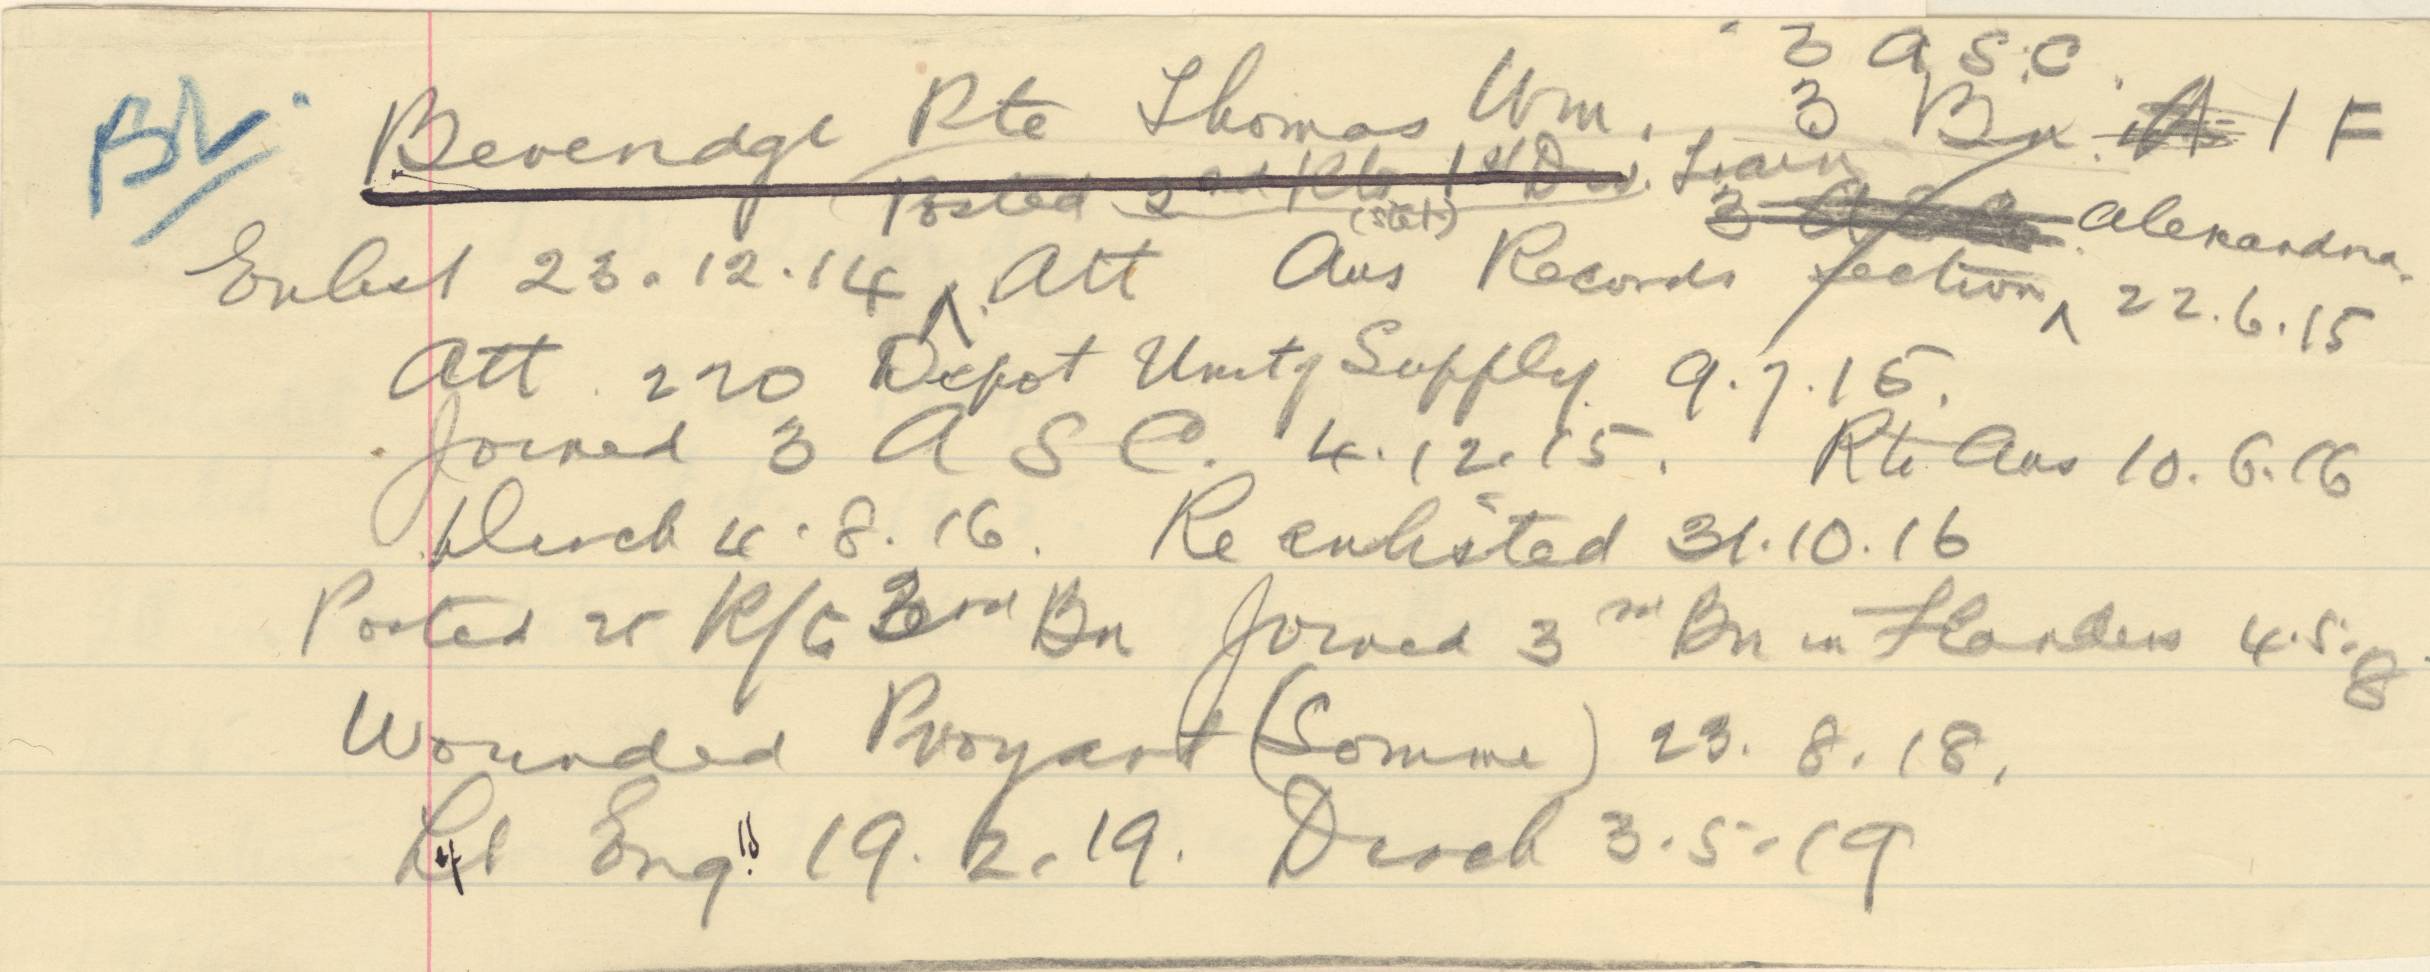 3 A S.C.
BL. Beveridge Pte Thomas Wm. 3 Bn. A I F
Posted 2nd Rfts 1st Div. Train
(stet) 3 A S C Alexandria.
Enlist 23.12.14 ^ Att Aus Records Section ^ 22.6.15
Att. 220 Depot Unity Supply 9.7.15.
Joined 3 A S C. 4.12.15. Rt. Aus 10.6.16
Disch 4.8.16. Re enlisted 31.10.16
Posted 25 R/f 3rd Bn Joined 3rd Bn in Flanders 4.5.8
Wounded Proyart (Somme) 23.8.18.
Lft Eng! 19.2.19. Disch 3.5.19